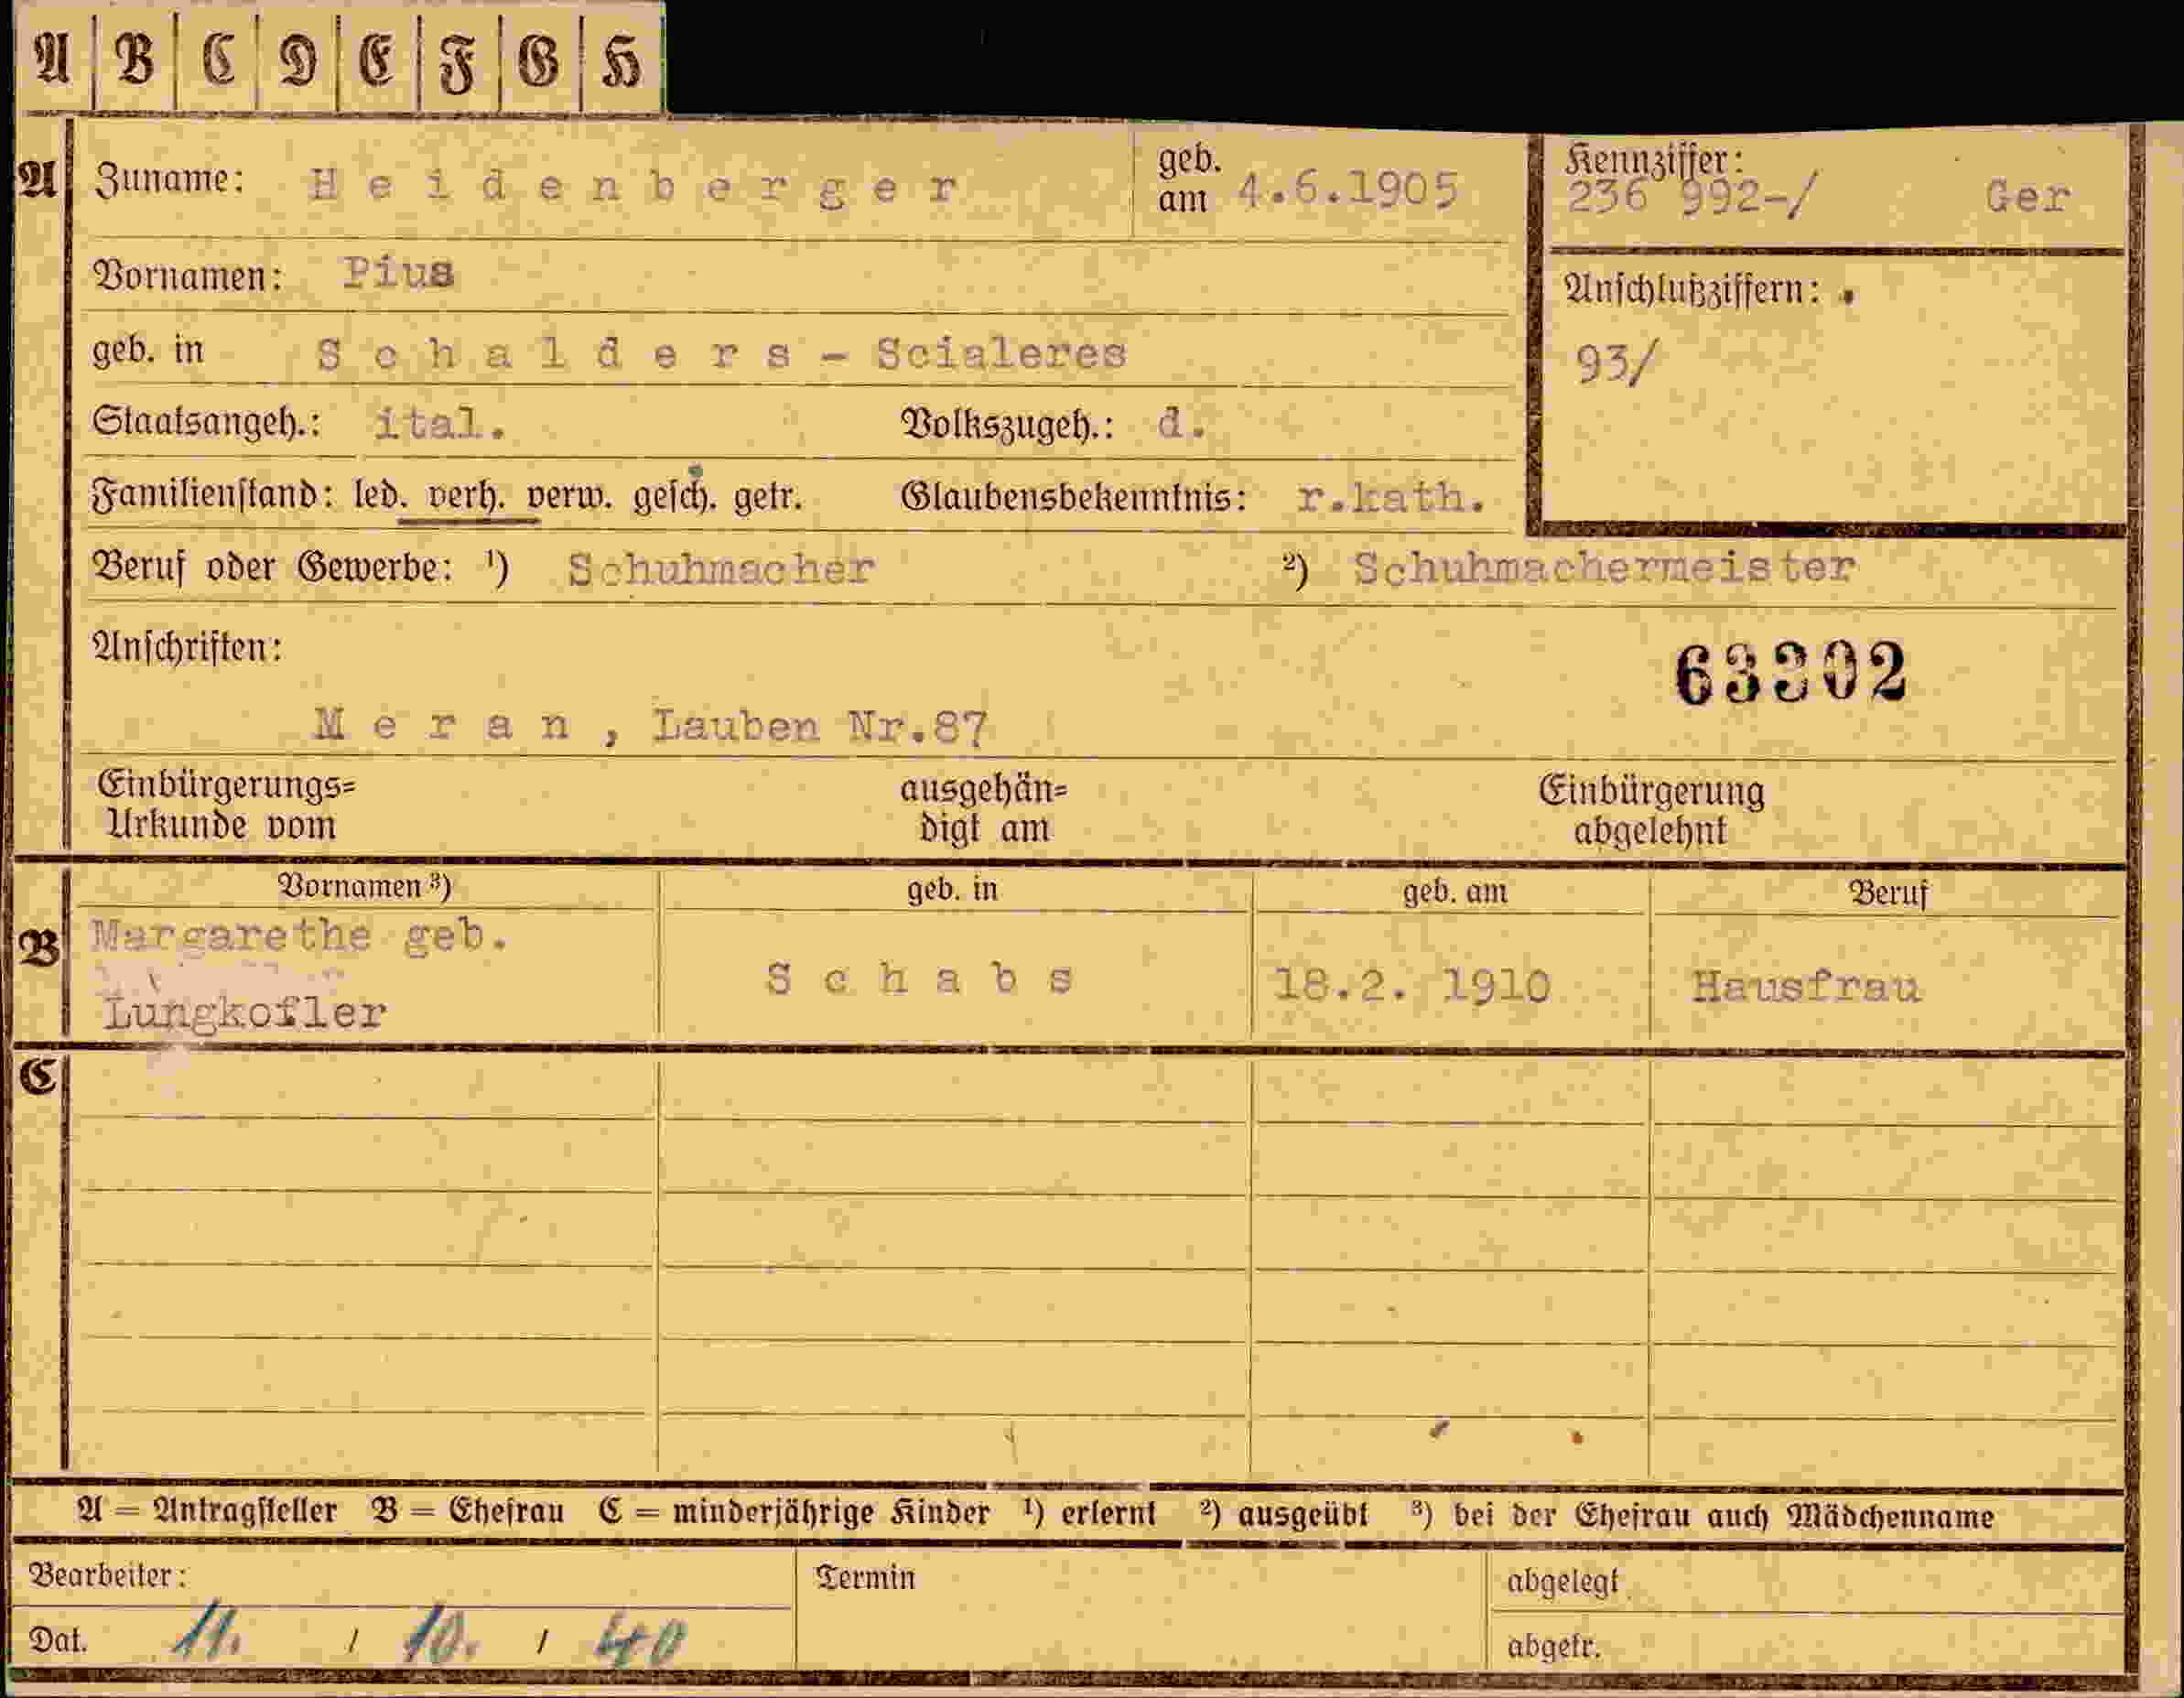 A B C D E F G H
A Zuname: Heidenberger geb. am 4.6.1905 Kennziffer: 236 992-/ Ger
Vornamen: Pius
Anschlußziffern:
geb. in Schalders - Scialeres
93/
Staatsangeh.: ital. Volkszugeh.: d.
Familienstand: led. verh. verw. gesch. getr. Glaubensbekenntnis: r.kath.
Beruf oder Gewerbe: ¹) Schuhmacher ²) Schuhmachermeister
Anschriften:
63302
Meran, Lauben Nr.87
Einbürgerungs= ausgehän= Einbürgerung
Urkunde vom digt am abgelehnt
Vornamen ³) geb. in geb. am Beruf
B Margarethe geb.
Schabs 18.2. 1910 Hausfrau
Lungkofler
C
A = Antragsteller B = Ehefrau C = minderjährige Kinder ¹) erlernt ²) ausgeübt ³) bei der Ehefrau auch Mädchenname
Bearbeiter: Termin abgelegt
Dat. 11. / 10. / 40 abgetr.